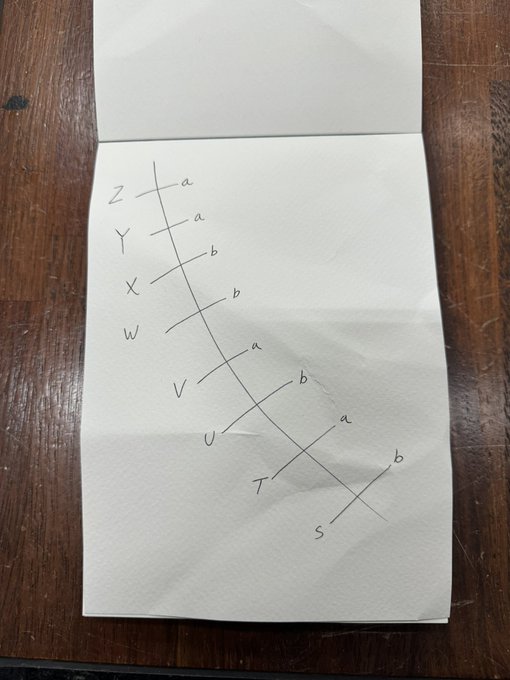 Z a
Y a
X b
W b
V a
U b
T a
S b